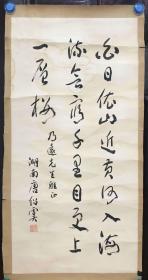 白日依山近黄河入海
流欲窮千里目更上
一層樓
乃遠先生雅正
湖南唐